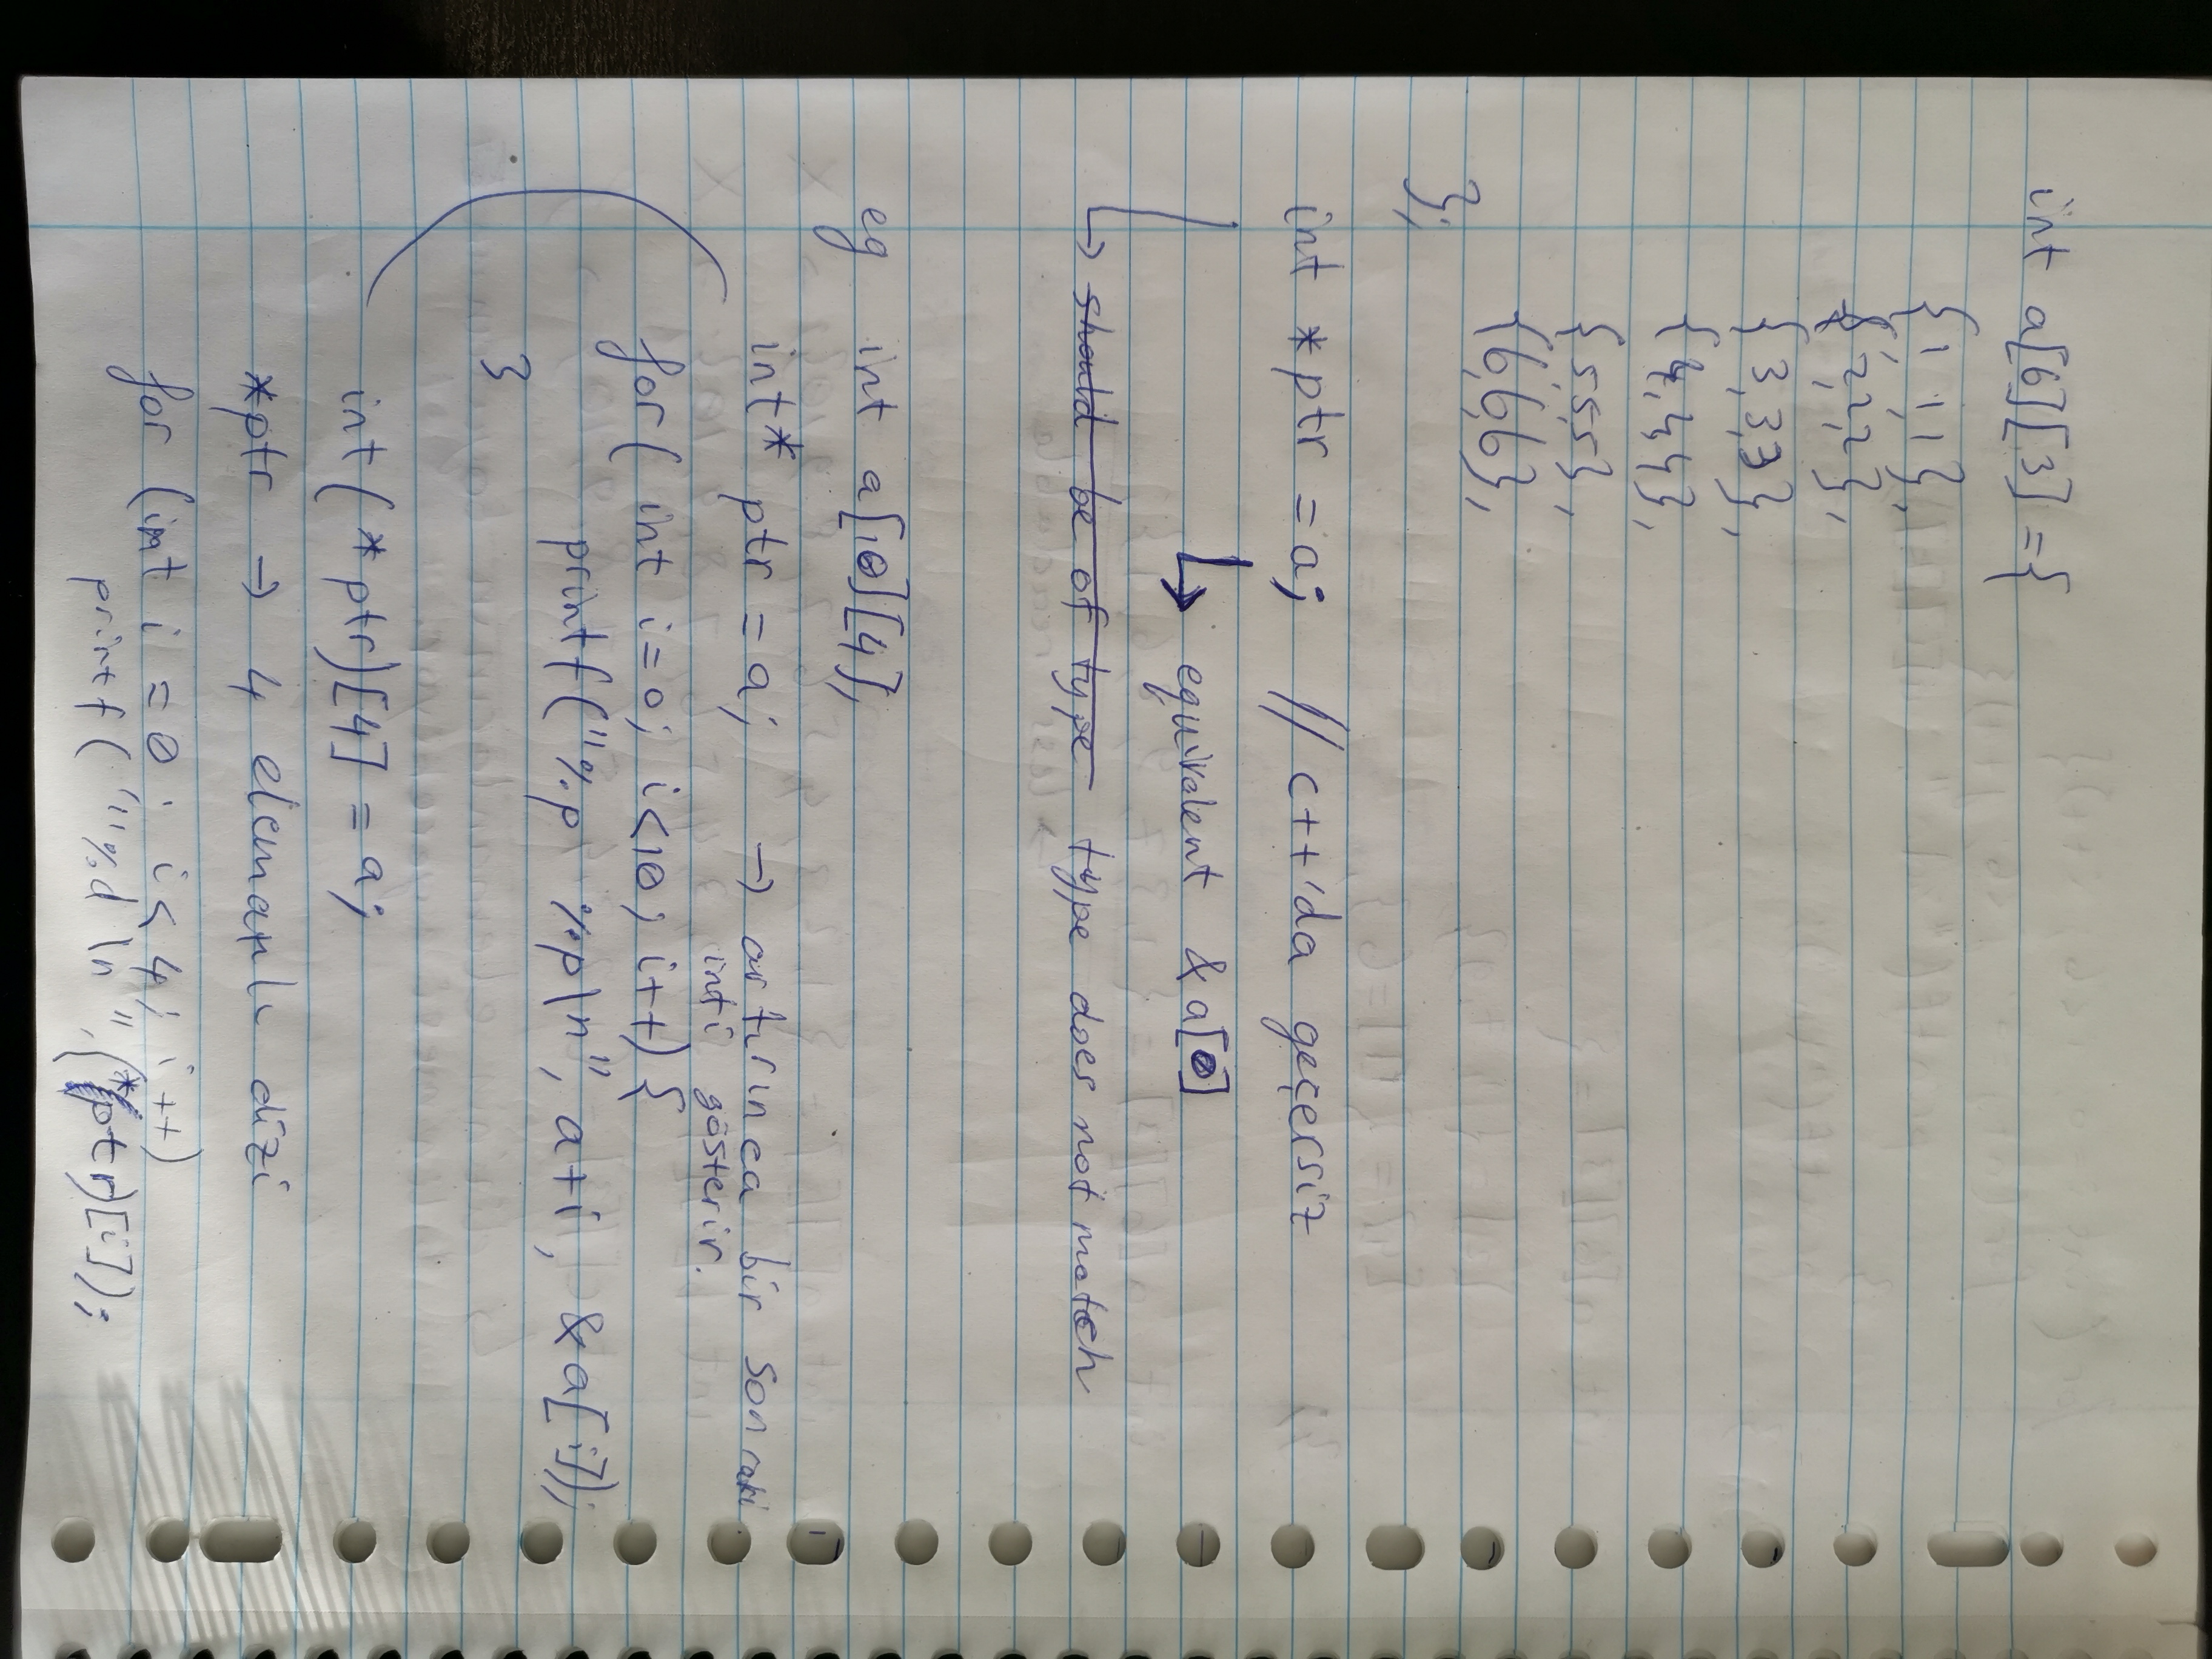 int a[6][3] ={
{1,1,1},
{2,2,2},
{3,3,3},
{4,4,4},
{5,5,5},
{6,6,6},
};
int *ptr = a; // c++'da geçersiz
equivalent &a[0]
should be of type type does not match
eg int a[10][4];
int* ptr = a; → artırınca bir sonraki
inti gösterir.
for( int i=0; i<10; i++) {
printf("%p %p\n", a+i, &a[i]);
}
int(*ptr)[4] = a;
*ptr → 4 elemanlı dizi
for (int i = 0; i< 4; i++)
printf( "%d \n", (*ptr)[i]);